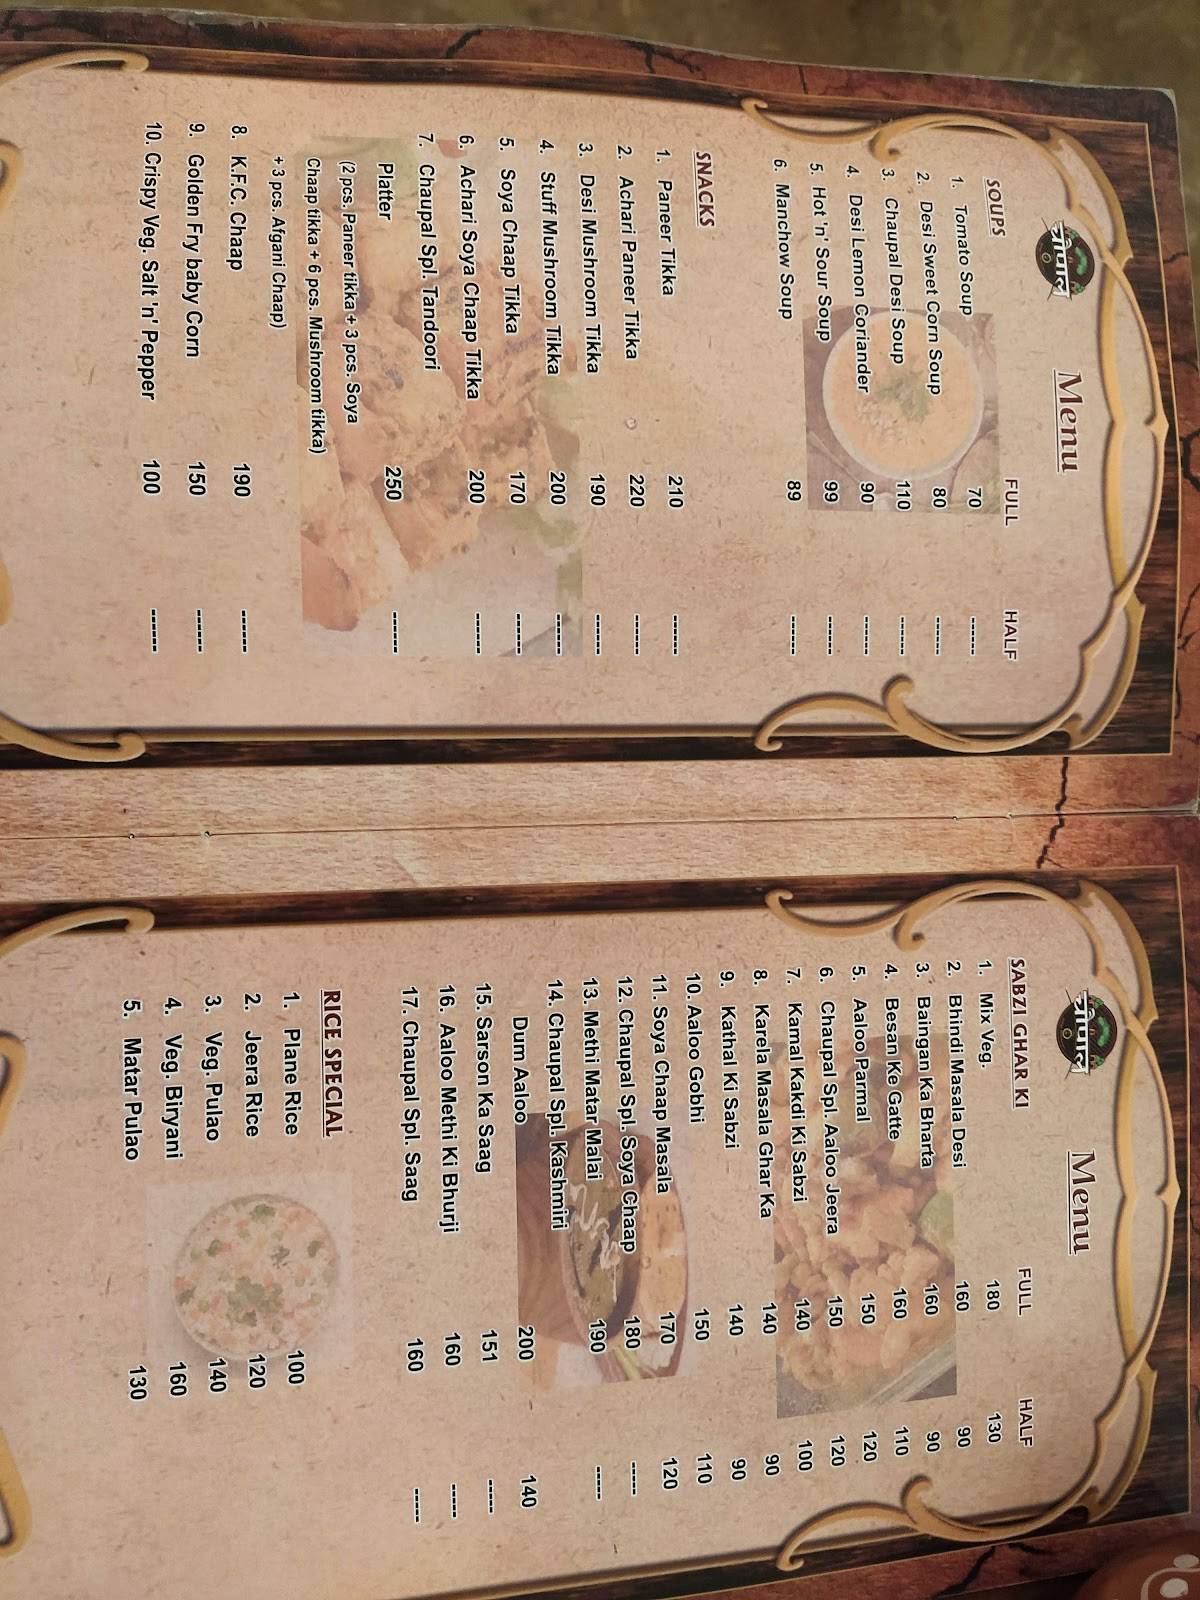 चौपाल
Menu
FULL HALF
SOUPS
1. Tomato Soup 70 -----
2. Desi Sweet Corn Soup 80 -----
3. Chaupal Desi Soup 110 -----
4. Desi Lemon Coriander 90 -----
5. Hot 'n' Sour Soup 99 -----
6. Manchow Soup 89 -----
SNACKS
1. Paneer Tikka 210 -----
2. Achari Paneer Tikka 220 -----
3. Desi Mushroom Tikka 190 -----
4. Stuff Mushroom Tikka 200 -----
5. Soya Chaap Tikka 170 -----
6. Achari Soya Chaap Tikka 200 -----
7. Chaupal Spl. Tandoori
Platter 250 -----
(2 pcs. Paneer tikka + 3 pcs. Soya
Chaap tikka + 6 pcs. Mushroom tikka)
+3 pcs. Afgani Chaap)
8. K.F.C. Chaap 190 -----
9. Golden Fry baby Corn 150 -----
10. Crispy Veg. Salt 'n' Pepper 100 -----
चौपाल
Menu
FULL HALF
SABZI GHAR KI
1. Mix Veg. 180 130
2. Bhindi Masala Desi 160 90
3. Baingan Ka Bharta 160 90
4. Besan Ke Gatte 160 110
5. Aaloo Parmal 150 120
6. Chaupal Spl. Aaloo Jeera 150 120
7. Kamal Kakdi Ki Sabzi 140 100
8. Karela Masala Ghar Ka 140 90
9. Kathal Ki Sabzi 140 90
10. Aaloo Gobhi 150 110
11. Soya Chaap Masala 170 120
12. Chaupal Spl. Soya Chaap 180 -----
13. Methi Matar Malai 190 -----
14. Chaupal Spl. Kashmiri
Dum Aaloo 200 140
15. Sarson Ka Saag 151 -----
16. Aaloo Methi Ki Bhurji 160 -----
17. Chaupal Spl. Saag 160 -----
RICE SPECIAL
1. Plane Rice 100
2. Jeera Rice 120
3. Veg. Pulao 140
4. Veg. Biryani 160
5. Matar Pulao 130